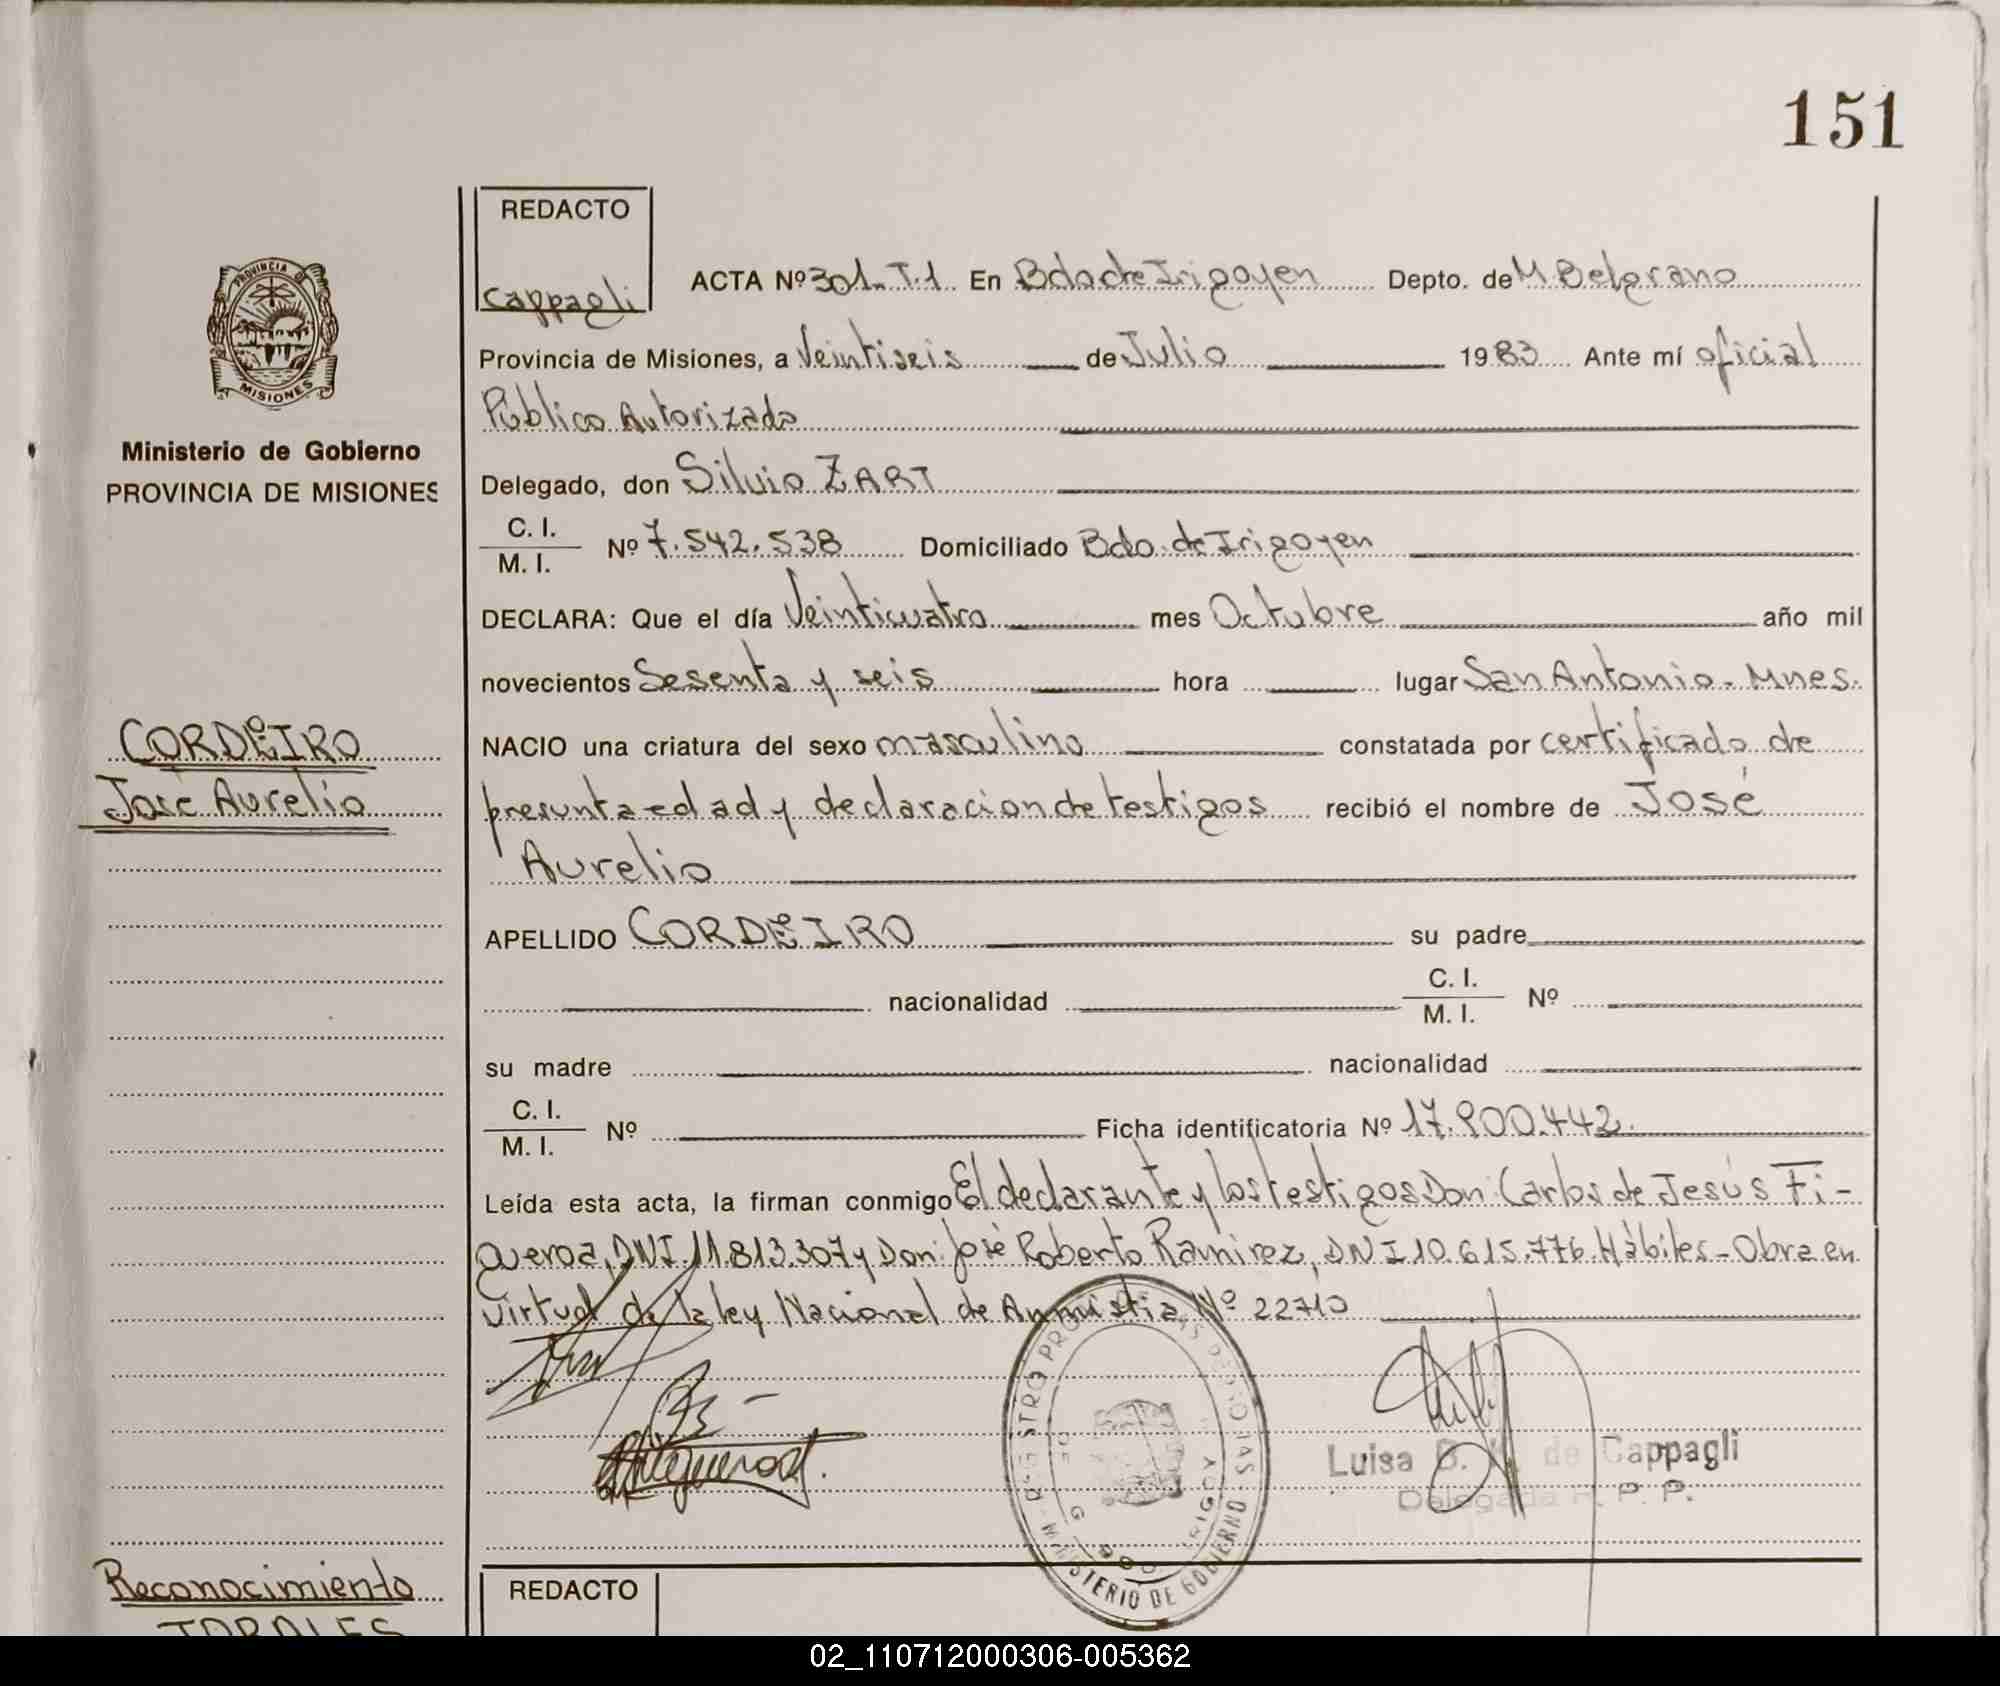 151
REDACTO
Cappagli
ACTA Nº 301. T.1. En Bdo de Irigoyen Depto. de M. Belgrano
Provincia de Misiones, a Veintiseis de Julio 1983 Ante mí oficial
Público Autorizado
Delegado, don Silvio ZART
C. I.
M. I. Nº 7.542.538 Domiciliado Bdo. de Irigoyen
DECLARA: Que el día Veinticuatro mes Octubre año mil
novecientos Sesenta y seis hora lugar San Antonio - Mnes.
NACIO una criatura del sexo masculino constatada por certificado de
presunta edad y declaracion de testigos recibió el nombre de José
Aurelio
APELLIDO CORDEIRO su padre
nacionalidad C. I.
M. I. Nº
su madre nacionalidad
C. I.
M. I. Nº Ficha identificatoria Nº 17.900.442.
Leída esta acta, la firman conmigo El declarante y los testigos Don: Carlos de Jesús Fi-
gueroa, DNI. 11.813.307 y Don: José Roberto Ramirez, DNI 10.615.776. Hábiles - Obra en
virtud de la ley Nacional de Anmistia Nº 22710
PROVINCIA DE
MISIONES
Ministerio de Gobierno
PROVINCIA DE MISIONES
CORDEIRO
José Aurelio
MINISTERIO DE GOBIERNO
Luisa de Cappagli
Delegada R. P. P.
Reconocimiento
TORALES
REDACTO
02_110712000306-005362